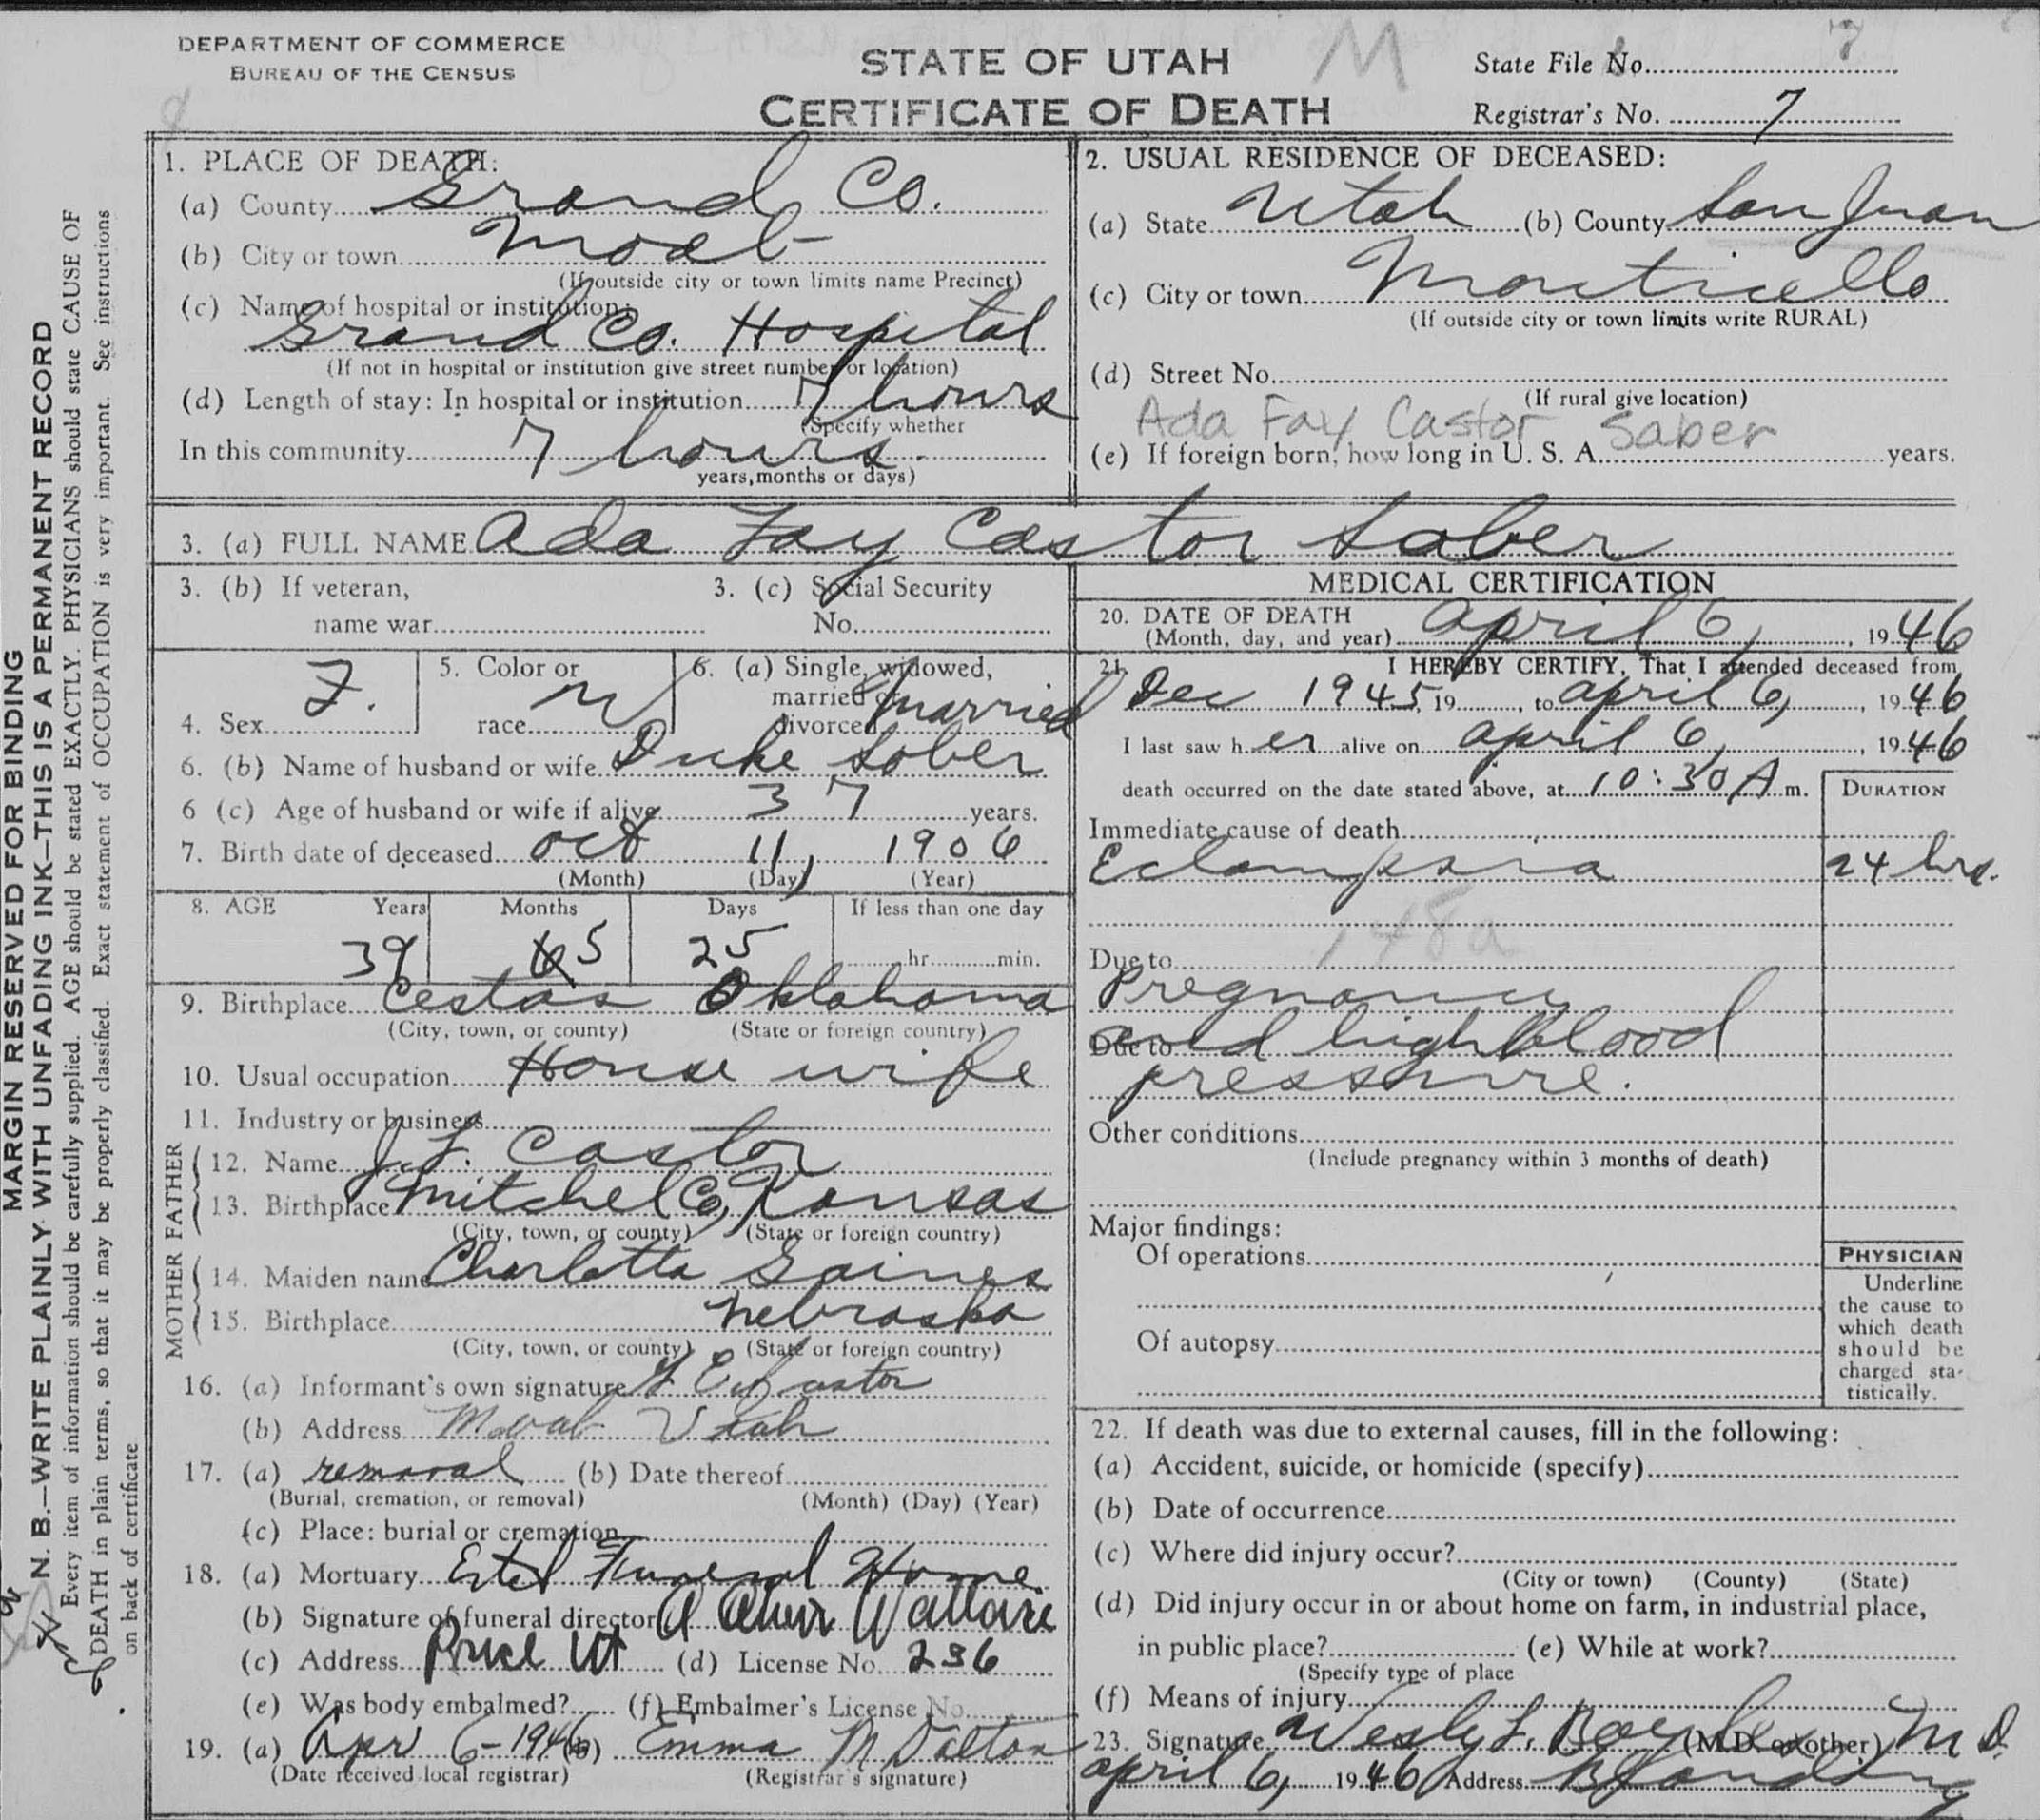 DEPARTMENT OF COMMERCE
BUREAU OF THE CENSUS
STATE OF UTAH
CERTIFICATE OF DEATH
M
State File No. 7
Registrar's No. 7
MARGIN RESERVED FOR BINDING
N. B.—WRITE PLAINLY WITH UNFADING INK—THIS IS A PERMANENT RECORD
Every item of information should be carefully supplied. AGE should be stated EXACTLY. PHYSICIANS should state CAUSE OF
DEATH in plain terms, so that it may be properly classified. Exact statement of OCCUPATION is very important. See instructions
on back of certificate
1. PLACE OF DEATH:
(a) County Grand Co.
(b) City or town Moab
(If outside city or town limits name Precinct)
(c) Name of hospital or institution:
Grand Co. Hospital
(If not in hospital or institution give street number or location)
(d) Length of stay: In hospital or institution 7 hours
(Specify whether
In this community 7 hours.
years, months or days)
2. USUAL RESIDENCE OF DECEASED:
(a) State Utah (b) County San Juan
(c) City or town Monticello
(If outside city or town limits write RURAL)
(d) Street No.
(If rural give location)
Ada Fay Castor Saber
(e) If foreign born, how long in U. S. A. years.
3. (a) FULL NAME Ada Fay Castor Saber
3. (b) If veteran,
name war
3. (c) Social Security
No.
4. Sex F.
5. Color or
race W
6. (a) Single, widowed,
married or
divorced Married
6. (b) Name of husband or wife Duke Sober
6 (c) Age of husband or wife if alive 37 years.
7. Birth date of deceased Oct 11, 1906
(Month) (Day) (Year)
8. AGE Years Months Days If less than one day
39 5 25 hr. min.
9. Birthplace Cestos Oklahoma
(City, town, or county) (State or foreign country)
10. Usual occupation House wife
11. Industry or business
FATHER
12. Name J. F. Castor
13. Birthplace Mitchel Co, Kansas
(City, town, or county) (State or foreign country)
MOTHER
14. Maiden name Charlotta Gaines
15. Birthplace Nebraska
(City, town, or county) (State or foreign country)
16. (a) Informant's own signature Castor
(b) Address Moab Utah
17. (a) removal (b) Date thereof
(Burial, cremation, or removal) (Month) (Day) (Year)
(c) Place: burial or cremation
18. (a) Mortuary Funeral Home
(b) Signature of funeral director Wallace
(c) Address Price Ut (d) License No. 236
(e) Was body embalmed? (f) Embalmer's License No.
19. (a) Apr 6-1946 (b) Emma M Dalton
(Date received local registrar) (Registrar's signature)
MEDICAL CERTIFICATION
20. DATE OF DEATH
(Month, day, and year) April 6, 1946
21. I HEREBY CERTIFY, That I attended deceased from
Dec 1945, 19 , to April 6, 1946
I last saw her alive on April 6, 1946
death occurred on the date stated above, at 10:30 A m. DURATION
Immediate cause of death
Eclampsia 24 hrs.
148a
Due to
Pregnancy
Due to and high blood
pressure.
Other conditions
(Include pregnancy within 3 months of death)
Major findings:
Of operations
Of autopsy
PHYSICIAN
Underline
the cause to
which death
should be
charged sta-
tistically.
22. If death was due to external causes, fill in the following:
(a) Accident, suicide, or homicide (specify)
(b) Date of occurrence
(c) Where did injury occur?
(City or town) (County) (State)
(d) Did injury occur in or about home on farm, in industrial place,
in public place? (e) While at work?
(Specify type of place
(f) Means of injury
23. Signature Wesly L. Bayles (M.D. or other) M D.
April 6, 1946 Address Blanding